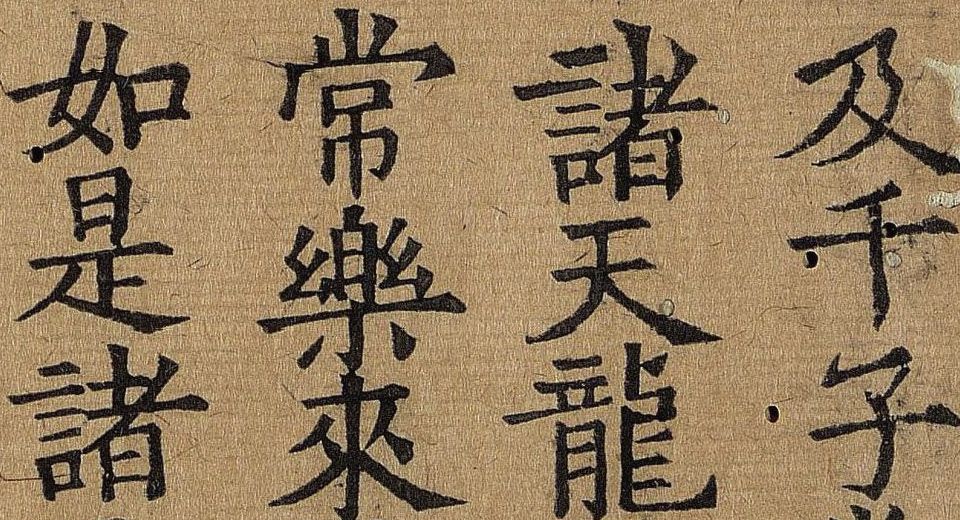 及千子
諸天龍
常樂來
如是諸